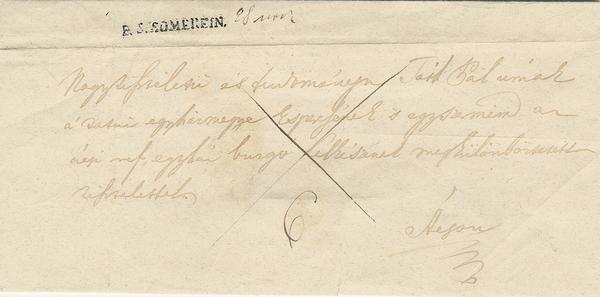 P. S. SOMEREIN. 28 nov
Nagytiszteletü és tudományu Tóth Pál úrnak
a egyházmegye Esperesének s egyszersmind az
ref. egyház buzgó lelkészének megkülönböztetett
tisztelettel
6